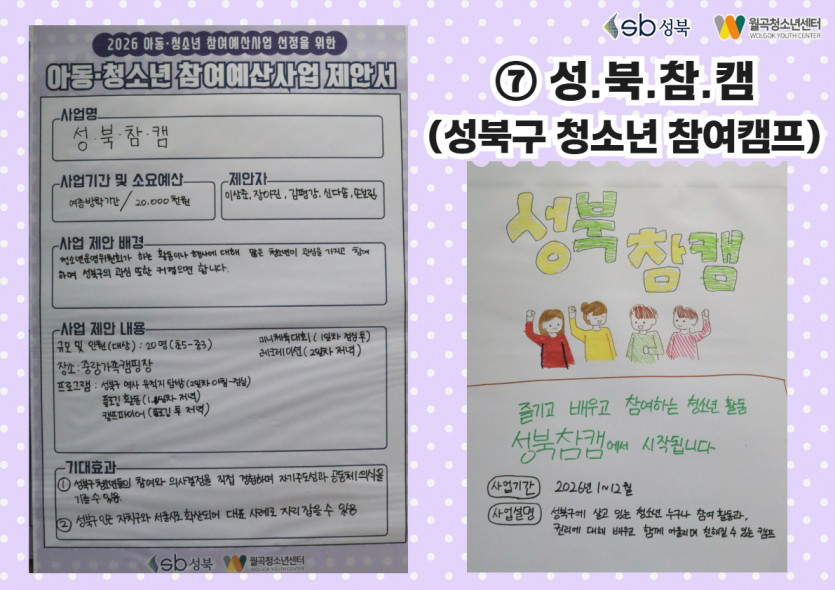 sb 성북
월곡청소년센터
WOLGOK YOUTH CENTER
⑦ 성.북.참.캠
(성북구 청소년 참여캠프)
2026 아동·청소년 참여예산사업 선정을 위한
아동·청소년 참여예산사업 제안서
사업명
성·북·참·캠
사업기간 및 소요예산
여름방학기간 / 20,000천원
제안자
이상훈, 장아진, 김평강, 신다솜,
사업 제안 배경
청소년운영위원회가 하는 활동이나 행사에 대해 많은 청소년이 관심을 가지고 참여
하며 성북구의 관심 또한 커졌으면 합니다.
사업 제안 내용
규모 및 인원(대상) : 20명 (초5-중3)
장소 : 중랑가족캠핑장
프로그램 : 성북구 역사 유적지 탐방 (2일차 아침-점심)
활동 (1일차 저녁)
캠프파이어 ( 후 저녁)
미니체육대회 (1일차 점심 후)
레크레이션 (2일차 저녁)
기대효과
① 성북구 청소년들의 참여와 의사결정을 직접 경험하며 자기주도성과 공동체 의식을
기를 수 있음.
② 성북구 자치구와 서울시로 확산되어 대표 사례로 자리 잡을 수 있음
sb 성북
월곡청소년센터
WOLGOK YOUTH CENTER
성북
참캠
즐기고 배우고 참여하는 청소년 활동
성북참캠에서 시작됩니다
사업기간 2026년 1~12월
사업설명 성북구에 살고 있는 청소년 누구나 참여 활동과,
권리에 대해 배우고 함께 어울리며 친해질 수 있는 캠프